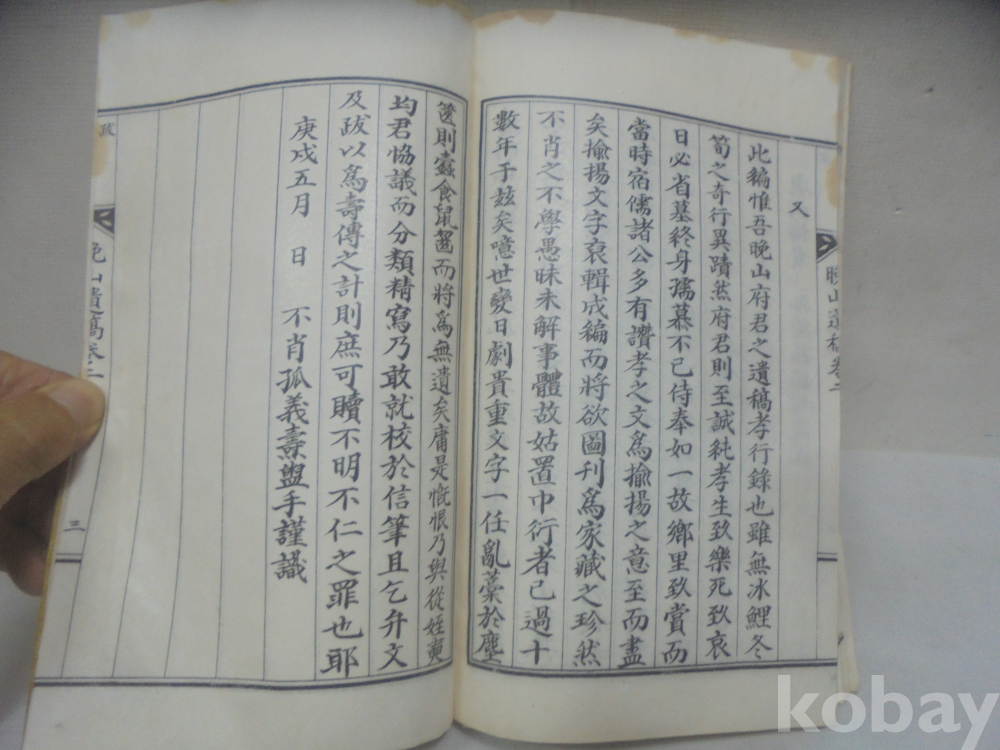 又
此編惟吾晩山府君之遺稿孝行錄也雖無冰鯉冬
筍之奇行異蹟然府君則至誠純孝生致樂死致哀
日必省墓終身孺慕不已侍奉如一故鄉里致賞而
當時宿儒諸公多有讚孝之文爲揄揚之意至而盡
矣揄揚文字裒輯成編而將欲圖刊爲家藏之珍然
不肖之不學愚昧未解事體故姑置巾衍者已過十
數年于玆矣噫世變日劇貴重文字一任亂藁於塵
篋則蠧食鼠齧而將爲無遺矣庸是慨恨乃與從姪寅
均君恊議而分類精寫乃敢就校於信筆且乞弁文
及跋以爲壽傳之計則庶可贖不明不仁之罪也耶
庚戌五月 日 不肖孤義壽盥手謹識
晩山遺稿卷二
跋
晩山遺稿卷二
三
kobay